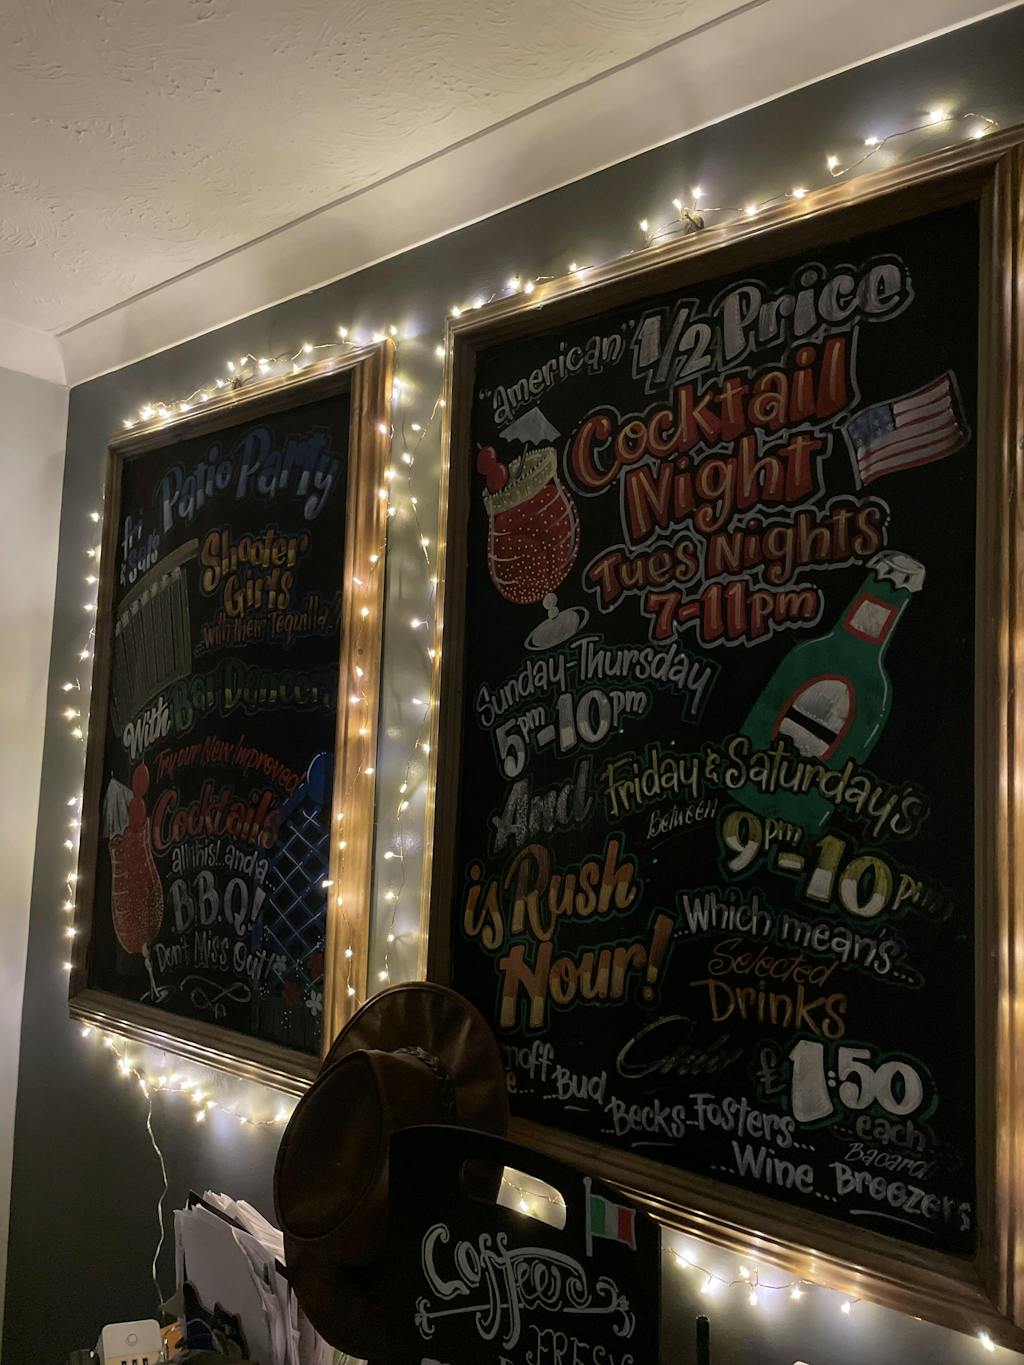 Fri & Sats
Patio Party
Shooter
Girls
...with their Tequilla!
With Bar Dancers
Try our New Improved!
Cocktails
all this!..and a
B.B.Q!
Don't Miss Out!!
"American" 1/2 Price
Cocktail
Night
Tues Nights
7-11pm
Sunday-Thursday
5pm-10pm
And Friday & Saturday's
Between
9pm-10pm
is Rush
Hour!
..Which mean's...
Selected
Drinks
Only £1.50
each
...Bud
..Becks..Fosters...
Bacardi
...Wine...Breezers
Coffees
FRESH